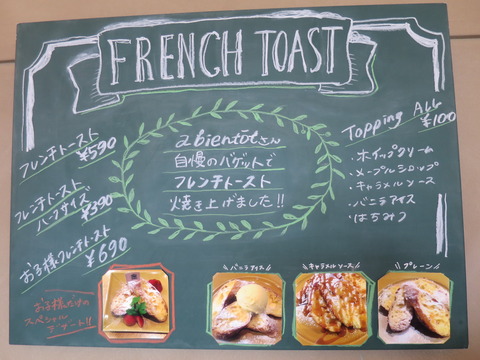 FRENCH TOAST
フレンチトースト
¥590
フレンチトースト
ハーフサイズ
¥390
お子様フレンチトースト
¥690
a bientôtさん
自慢のバゲットで
フレンチトースト
焼き上げました!!
Topping ALL
¥100
・ホイップクリーム
・メープルシロップ
・キャラメルソース
・バニラアイス
・はちみつ
お子様だけの
スペシャル
デザート!!
バニラアイス
キャラメルソース
プレーン